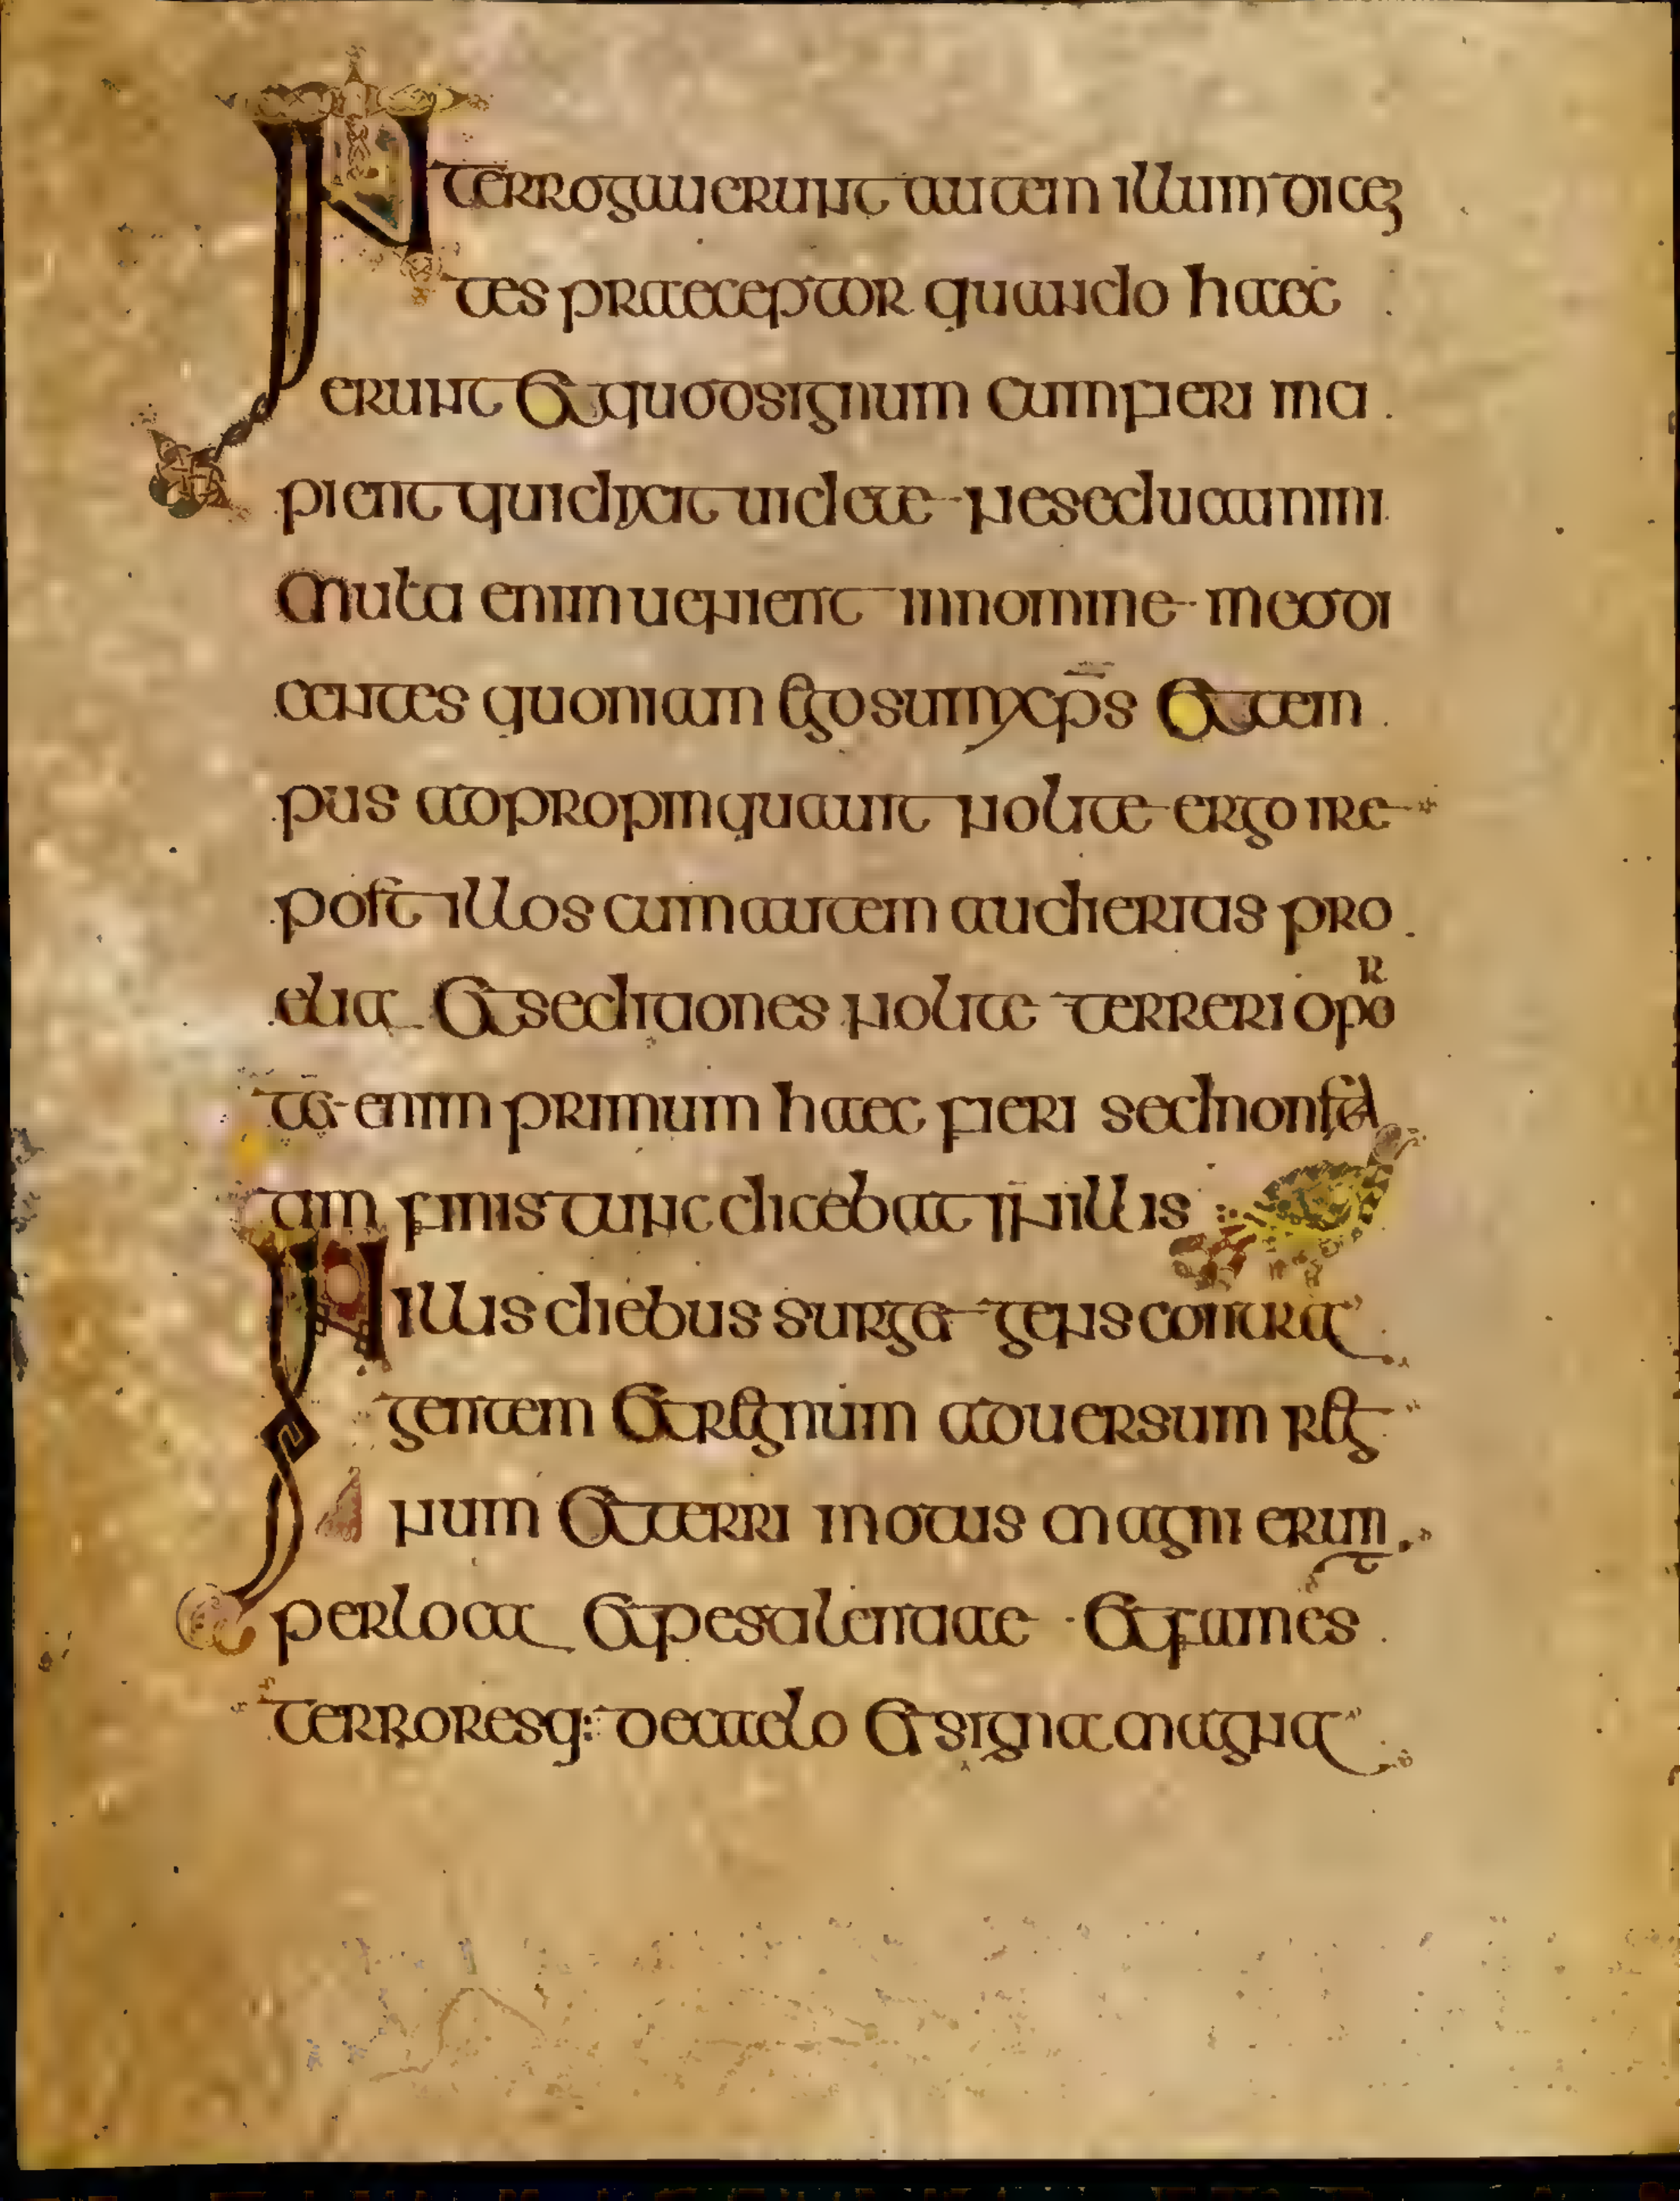 INterrogauerunt autem illum dicen
tes praeceptor quando haec
erunt et quod signum cum fieri inci
pient qui dixit uidete ne seducamini
Multi enim uenient in nomine meo di
centes quoniam ego sum xp̄s et tem
pus adpropinquauit nolite ergo ire
post illos cum autem audieritis pro
elia et seditiones nolite terreri opor
tet enim primum haec fieri sed non sta
tim finis tunc dicebat in illis
IN illis diebus surget gens contra
gentem et regnum aduersum reg
num et terri motus magni erunt
per loca et pestilentiae et fames
terroresq: de caelo et signa magna